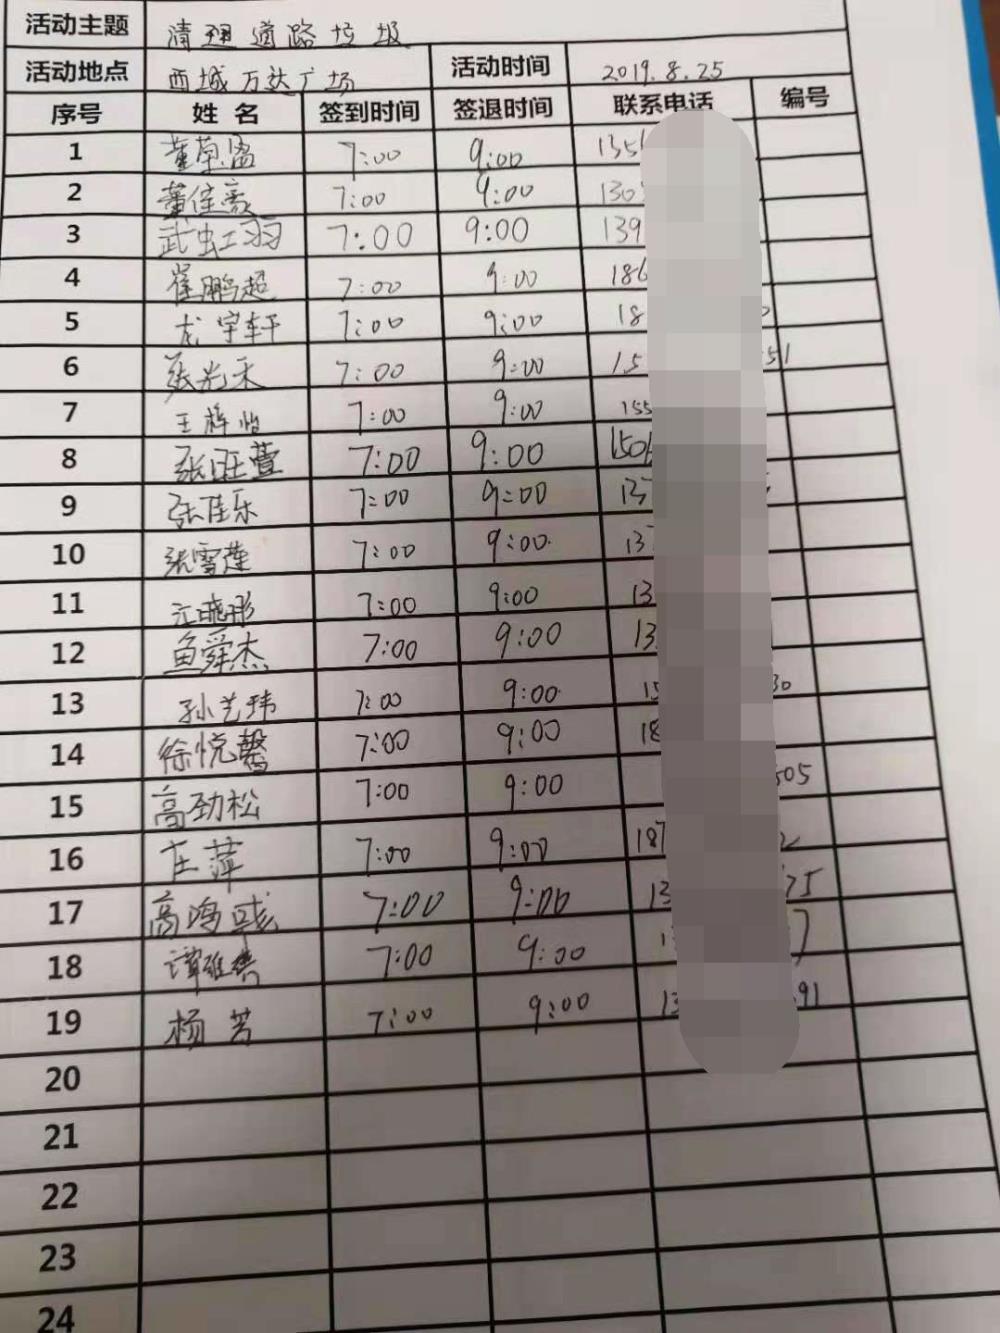 活动主题 清理道路垃圾
活动地点 西城万达广场 活动时间 2019.8.25
序号 姓名 签到时间 签退时间 联系电话 编号
1 7:00 9:00 135
2 董佳豪 7:00 9:00 130
3 武虹羽 7:00 9:00 139
4 崔鹏超 7:00 9:00 186
5 龙宇轩 7:00 9:00 18
6 张光禾 7:00 9:00 15 51
7 王梓怡 7:00 9:00 155
8 张旺萱 7:00 9:00 150
9 张佳乐 7:00 9:00 137
10 张雪莲 7:00 9:00 137
11 江晓彤 7:00 9:00 13
12 鱼舜杰 7:00 9:00 13
13 孙艺玮 7:00 9:00 15 30
14 徐悦馨 7:00 9:00 18
15 高劲松 7:00 9:00 505
16 庄萍 7:00 9:00 187 2
17 7:00 9:00 13 75
18 7:00 9:00 1 7
19 杨芳 7:00 9:00 13 91
20
21
22
23
24